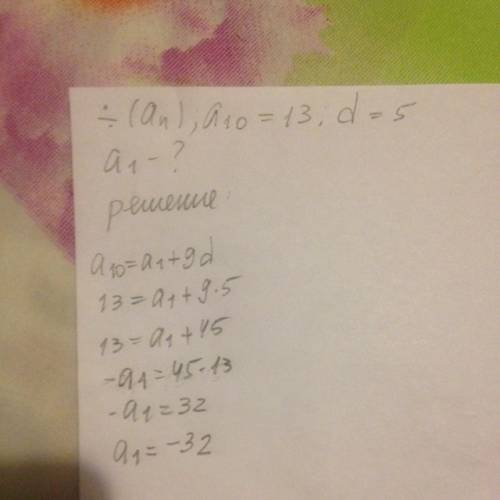 ÷ (aₙ), a₁₀ = 13; d = 5
a₁ - ?
решение:
a₁₀ = a₁ + 9d
13 = a₁ + 9·5
13 = a₁ + 45
-a₁ = 45-13
-a₁ = 32
a₁ = -32